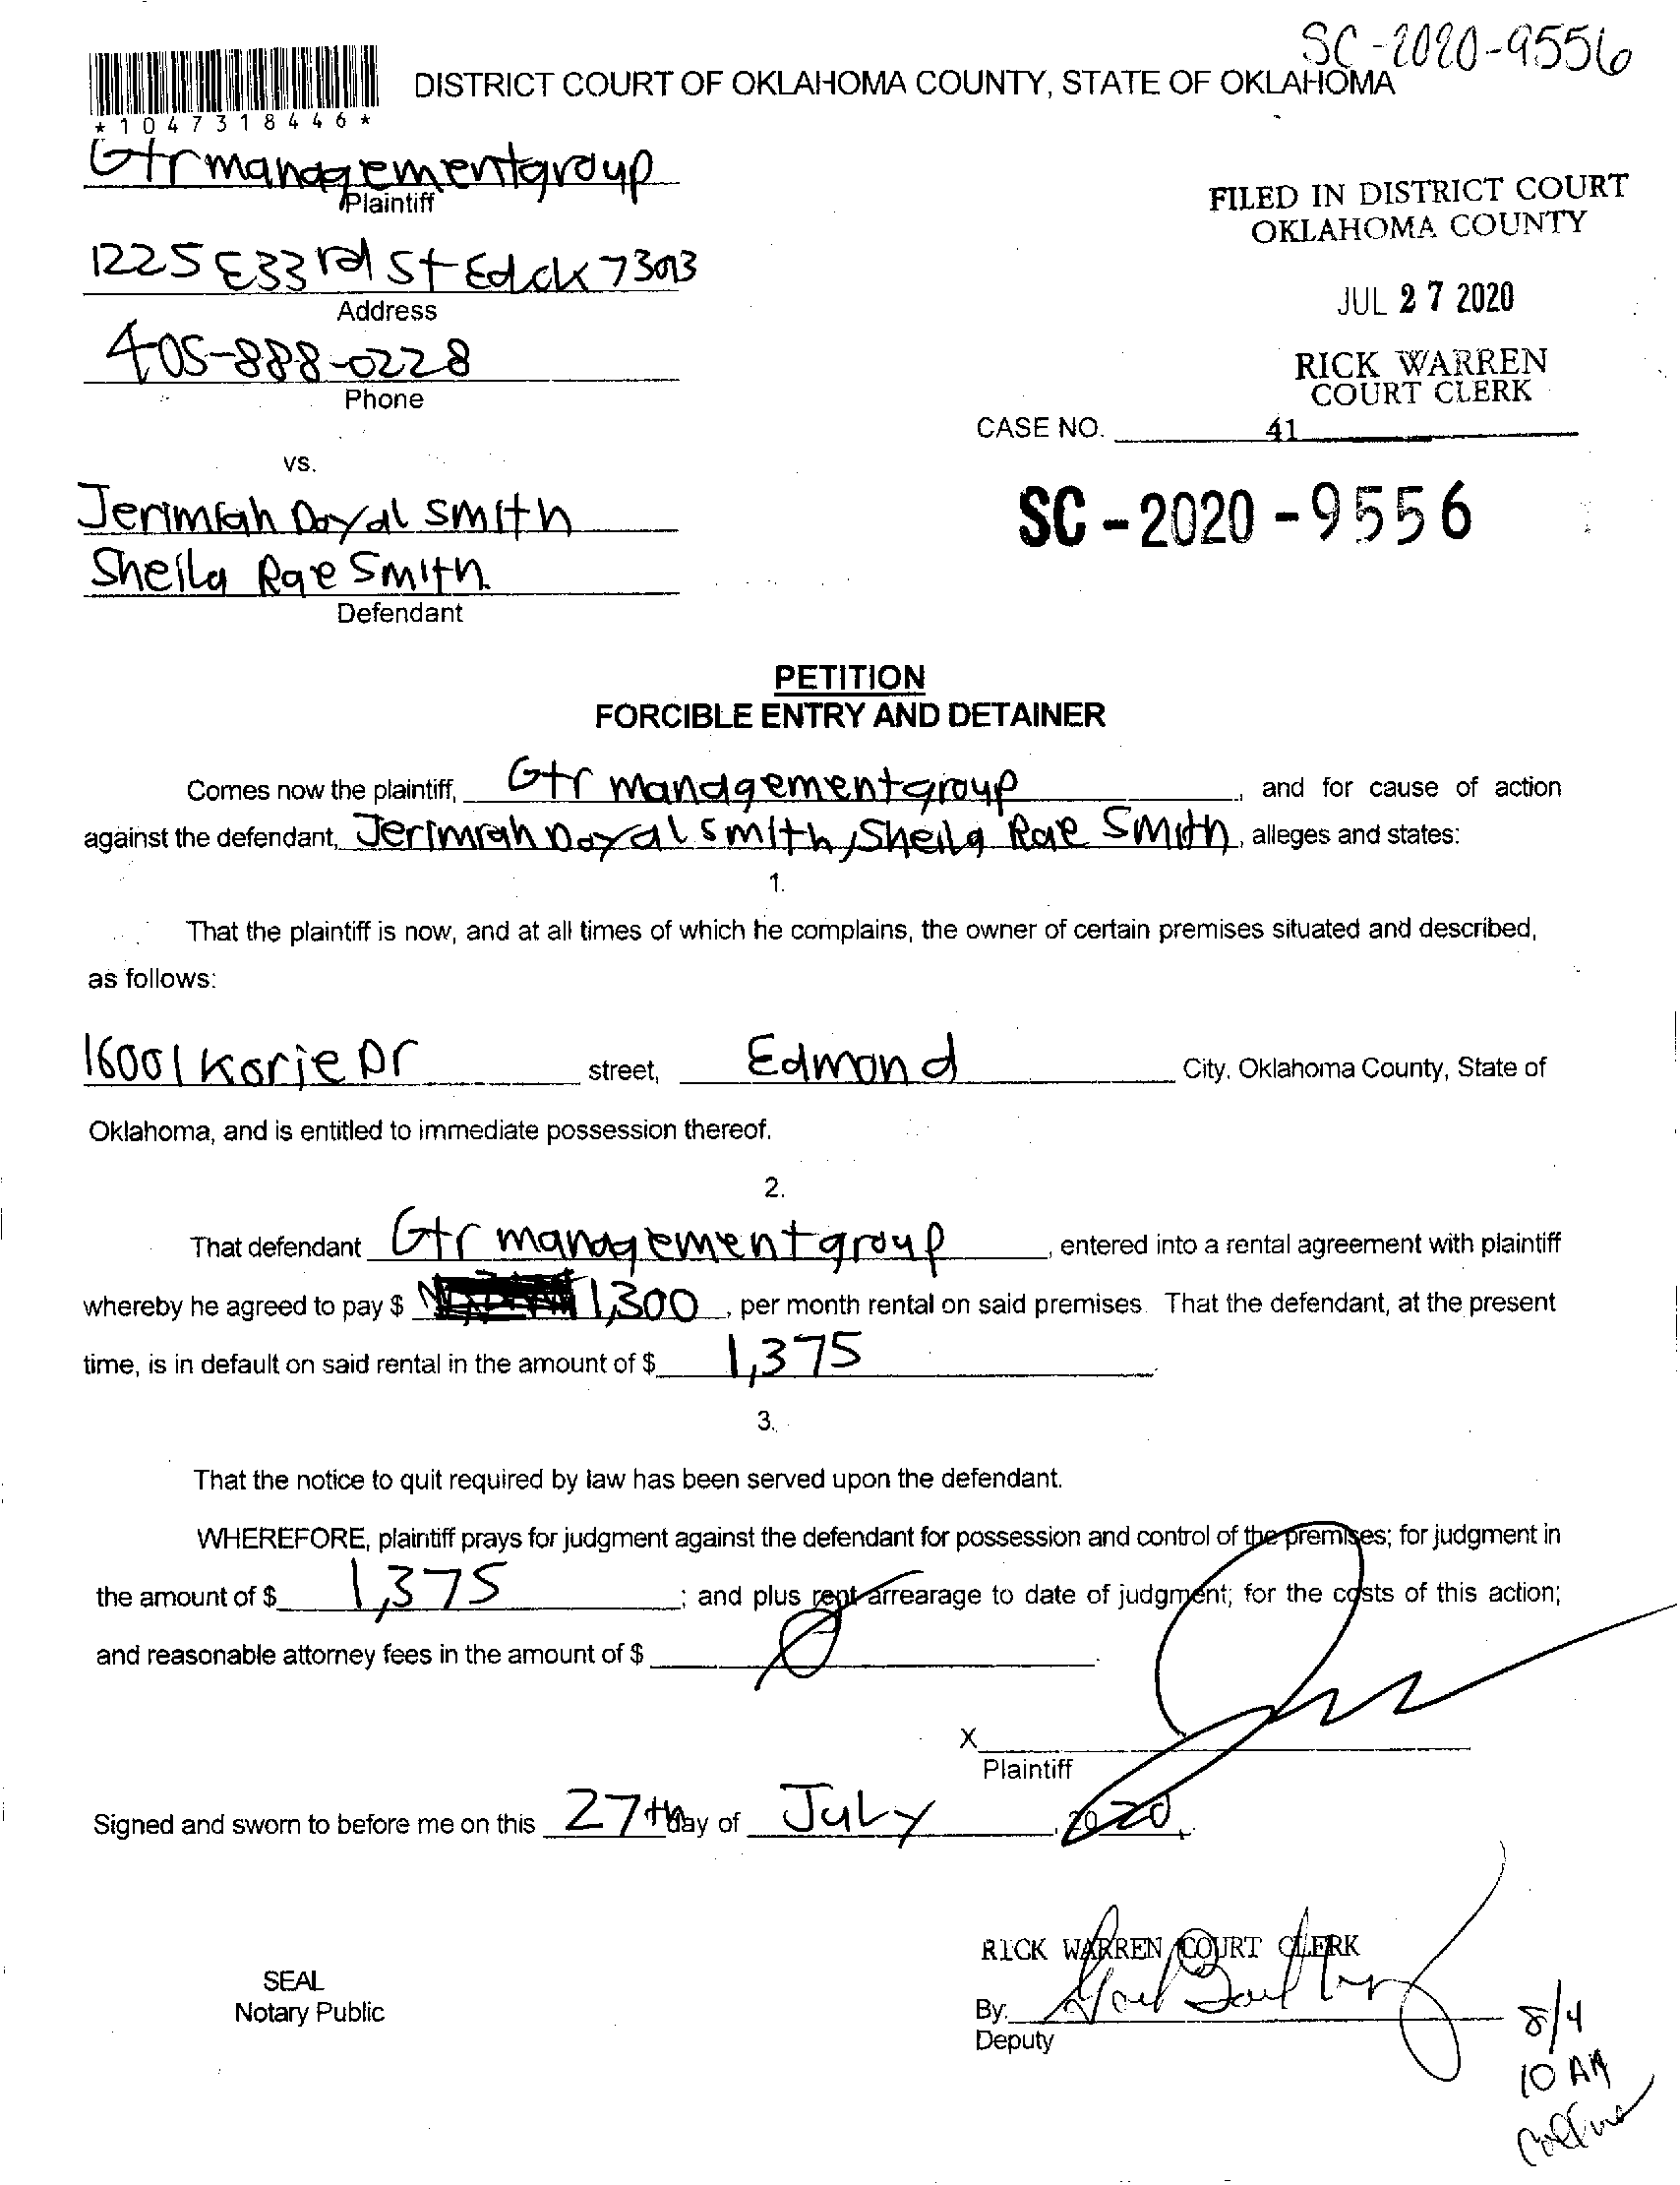 SC-2020-9556
DISTRICT COURT OF OKLAHOMA COUNTY, STATE OF OKLAHOMA
*1047318446*
Gtr managementgroup
Plaintiff
FILED IN DISTRICT COURT
OKLAHOMA COUNTY
1225 E33rd St Edok 73013
Address
JUL 27 2020
405-888-0228
Phone
RICK WARREN
COURT CLERK
CASE NO. 41
vs.
Jerimiah Doyal Smith
SC-2020-9556
Sheila Rae Smith
Defendant
PETITION
FORCIBLE ENTRY AND DETAINER
Comes now the plaintiff, Gtr managementgroup, and for cause of action
against the defendant, Jerimiah Doyal Smith, Sheila Rae Smith, alleges and states:
1.
That the plaintiff is now, and at all times of which he complains, the owner of certain premises situated and described,
as follows:
16001 Korie Dr street, Edmond City, Oklahoma County, State of
Oklahoma, and is entitled to immediate possession thereof.
2.
That defendant Gtr management group, entered into a rental agreement with plaintiff
whereby he agreed to pay $ 1,300, per month rental on said premises. That the defendant, at the present
time, is in default on said rental in the amount of $ 1,375.
3.
That the notice to quit required by law has been served upon the defendant.
WHEREFORE, plaintiff prays for judgment against the defendant for possession and control of the premises; for judgment in
the amount of $ 1,375; and plus rent arrearage to date of judgment; for the costs of this action;
and reasonable attorney fees in the amount of $ 0
X
Plaintiff
Signed and sworn to before me on this 27th day of July, 2020.
RICK WARREN COURT CLERK
SEAL
Notary Public
By:
Deputy
8/4
10 AM